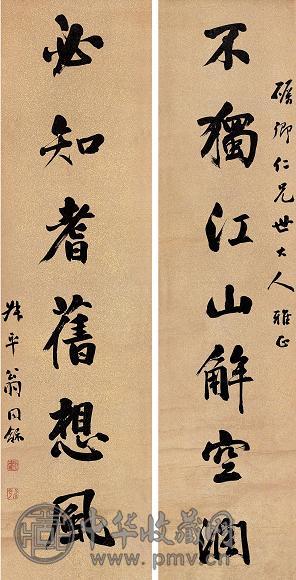 礪卿仁兄世大人雅正
不獨江山解空潤
必知耆舊想風
叔平翁同龢
中华收藏网
www.pmv.cn